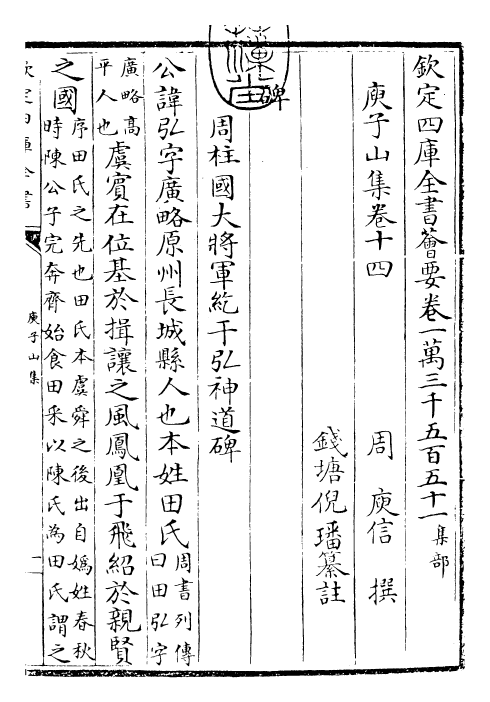 欽定四庫全書薈要卷一萬三千五百五十一集部
庾子山集卷十四
周 庾信 撰
錢塘倪璠纂註
碑
周柱國大將軍紇干弘神道碑
公諱弘字廣略原州長城縣人也本姓田氏
周書列傳
曰田弘字
廣略高
平人也
虞賓在位基於揖讓之風鳳凰于飛紹於親賢
之國
序田氏之先也田氏本虞舜之後出自嬀姓春秋
時陳公子完奔齊始食田采以陳氏為田氏謂之
欽定四庫全書
庾子山集
一